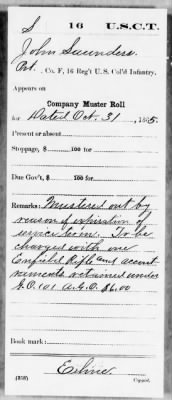 S 16 U.S.C.T.
John Saunders
Pvt., Co. F, 16 Reg't U. S. Col'd Infantry.
Appears on
Company Muster Roll
for Dated Oct. 31, 1865.
Present or absent
Stoppage, $ 100 for
Due Gov't, $ 100 for
Remarks: Mustered out by
reason of expiration of
service
To be
charged with one
Enfield Rifle and accout
rements retained under
G.O. 101 A.G.O. $6.00
Book mark:
(358)
Copyist.